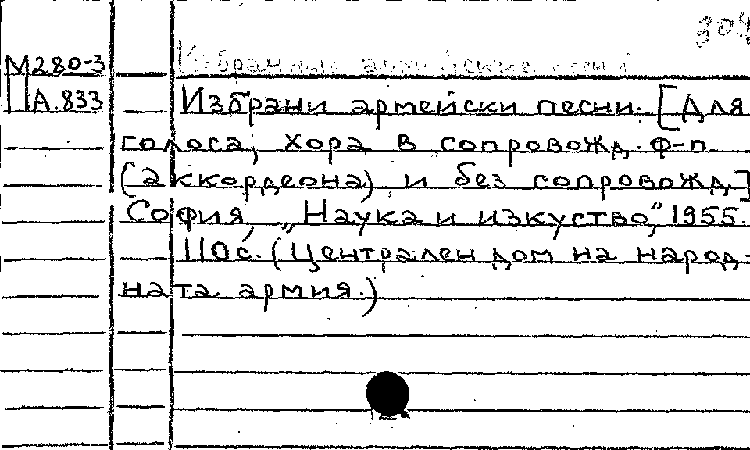 304
Избранные армейские песни
М280-3
ПА.833
Избрани армейски песни. [Для
голоса, хора в сопровожд. ф-п.
(аккордеона) и без сопровожд.]
София, „Наука и изкуство," 1955.
110с. (Централен дом на народ-
ната армия.)